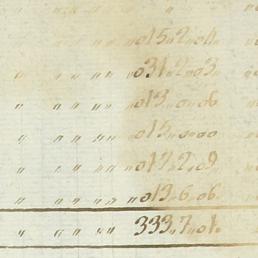 „ „ „ „ „ 015„2„04„
„ „ „ „ „ 031„2„03„
„ „ „ „ „ 013„0„06„
„ „ „ „ „ 015„0„00
„ „ „ „ „ 017„2„09„
„ „ „ „ „ 013„6„06„
„ „ „ „ „ 333„7„01„